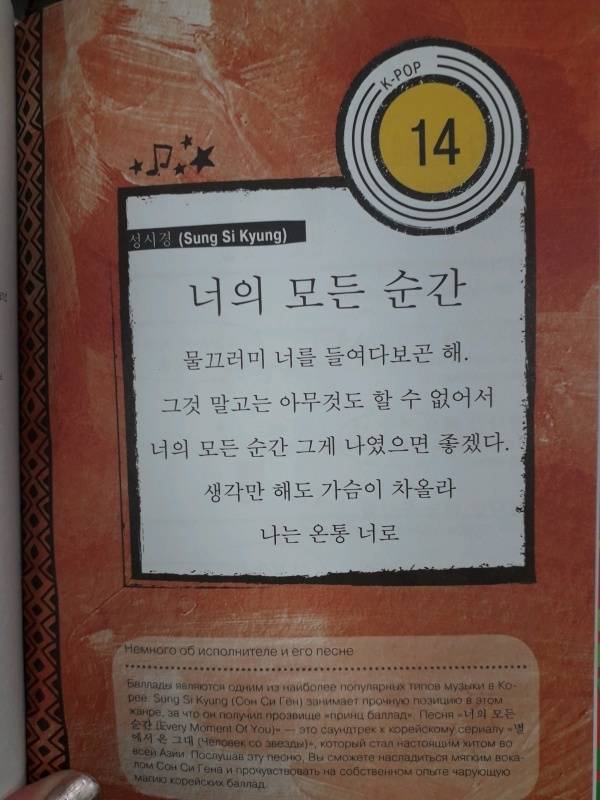 K-POP
14
성시경 (Sung Si Kyung)
너의 모든 순간
물끄러미 너를 들여다보곤 해.
그것 말고는 아무것도 할 수 없어서
너의 모든 순간 그게 나였으면 좋겠다.
생각만 해도 가슴이 차올라
나는 온통 너로
Немного об исполнителе и его песне
Баллады являются одним из наиболее популярных типов музыки в Ко-
рее. Sung Si Kyung (Сон Си Ген) занимает прочную позицию в этом
жанре, за что он получил прозвище «принц баллад». Песня «너의 모든
순간 (Every Moment Of You)» — это саундтрек к корейскому сериалу «별
에서 온 그대 (Человек со звезды)», который стал настоящим хитом во
всей Азии. Послушав эту песню, Вы сможете насладиться мягким вока-
лом Сон Си Гена и прочувствовать на собственном опыте чарующую
магию корейских баллад.